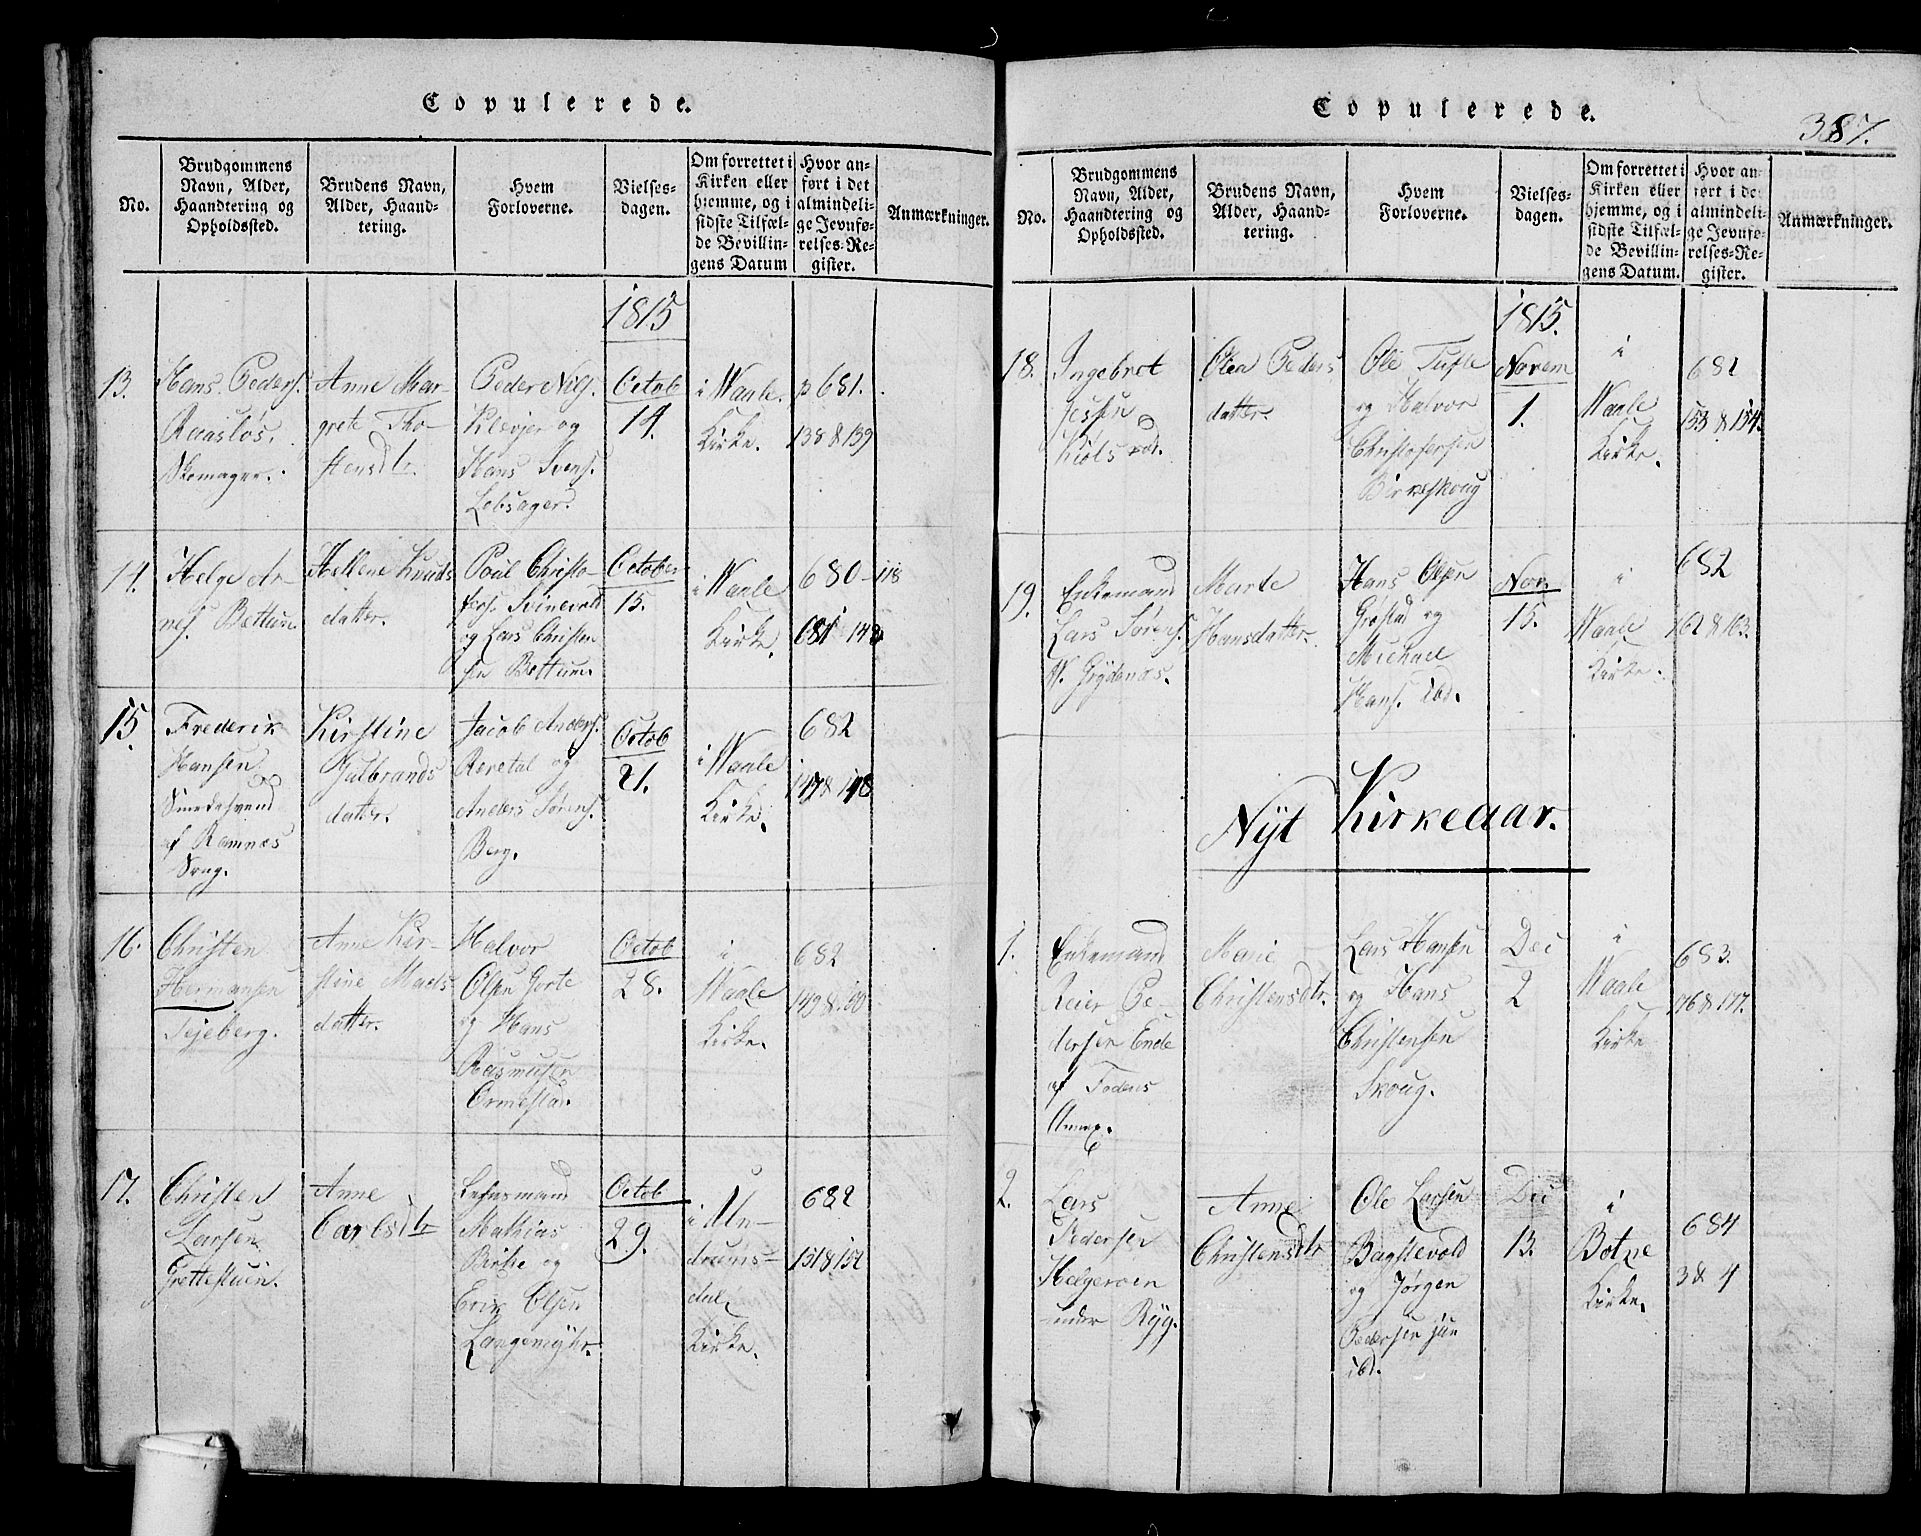 Copulerede.
No.
Brudgommens
Navn, Alder,
Haandtering og
Opholdssted.
Brudens Navn,
Alder, Haand-
tering.
Hvem
Forloverne.
Vielses-
dagen.
Om forrettet i
Kirken eller
hjemme, og i
sidste Tilfæl-
de Bevillin-
gens Datum
Hvor an-
ført i det
almindeli-
ge Jevnfø-
relses-Re-
gister.
Anmærkninger.
1815
13.
Hans Peders.
Raasløs.
Skomager.
Anne Mar-
grete Tho-
stensdtr.
Peder Nils.
Klevjer og
Hans Svens.
Lebsager.
Octob
14.
i Waale
Kirke.
p 681.
138 & 139
14.
Helge An-
nes. Bettum
Hellene Knuds
datter.
Poul Christo-
fers. Svinevold
og Lars Christen
sen Bettum.
October
15.
i Waale
Kirke.
680-118
681 142
15.
Frederik
Hansen
Smedesvend
af Ramnes
Sogn.
Kirstine
Gulbrands
datter.
Jacob Anders.
Revetal og
Anders Sørens.
Berg.
Octob
21.
i Waale
Kirke.
682
147 & 148
16.
Christen
Hermansen
Tejeberg.
Anne Kir-
stine Mads
datter.
Halvor
Olsen Gorte
og Hans
Rasmusen
Ormestad.
Octob
28.
i
Waale
Kirke.
682
149 & 150
17.
Christen
Larsen
Grettestuen.
Anne
Carlsdtr
Lehnsmand
Mathias
Birke og
Erik Olsen
Langemyhr.
Octob
29.
i Un-
drums-
dal
Kirke.
682
151 & 152
Copulerede.
387.
No.
Brudgommens
Navn, Alder,
Haandtering og
Opholdssted.
Brudens Navn,
Alder, Haand-
tering.
Hvem
Forloverne.
Vielses-
dagen.
Om forrettet i
Kirken eller
hjemme, og i
sidste Tilfæl-
de Bevillin-
gens Datum.
Hvor an-
ført i det
almindeli-
ge Jevnfø-
relses-Re-
gister.
Anmærkninger.
1815.
18.
Ingebret
Jessen
Kiøls rød.
Olea Peders
datter.
Ole Tufte
og Halvor
Christofersen
Birkeskoug
Novem
1.
i
Waale
Kirke.
682
153 & 154.
19.
Enkemand
Lars Sørens.
W. Grydenøs.
Marte
Hansdatter.
Hans Olsen
Grøstad og
Michael
Hans. ibd.
Nov
15.
i
Waale
Kirke.
682
162 & 163.
Nyt Kirkeaar.
1.
Enkemand
Reier Pe-
dersen Ende
af Fodens
Annex.
Marie
Christensdtr.
Lars Hansen
og Hans
Christensen
Skoug.
Dec
2
i
Waale
Kirke
683.
176 & 177.
2.
Lars
Pedersen
Helgeroen
under Ryg.
Anne
Christensdtr
Ole Larsen
Bagstevold
og Jørgen
Pedersen jun
ibd.
Dec
13.
i
Botne
Kirke.
684
3 & 4